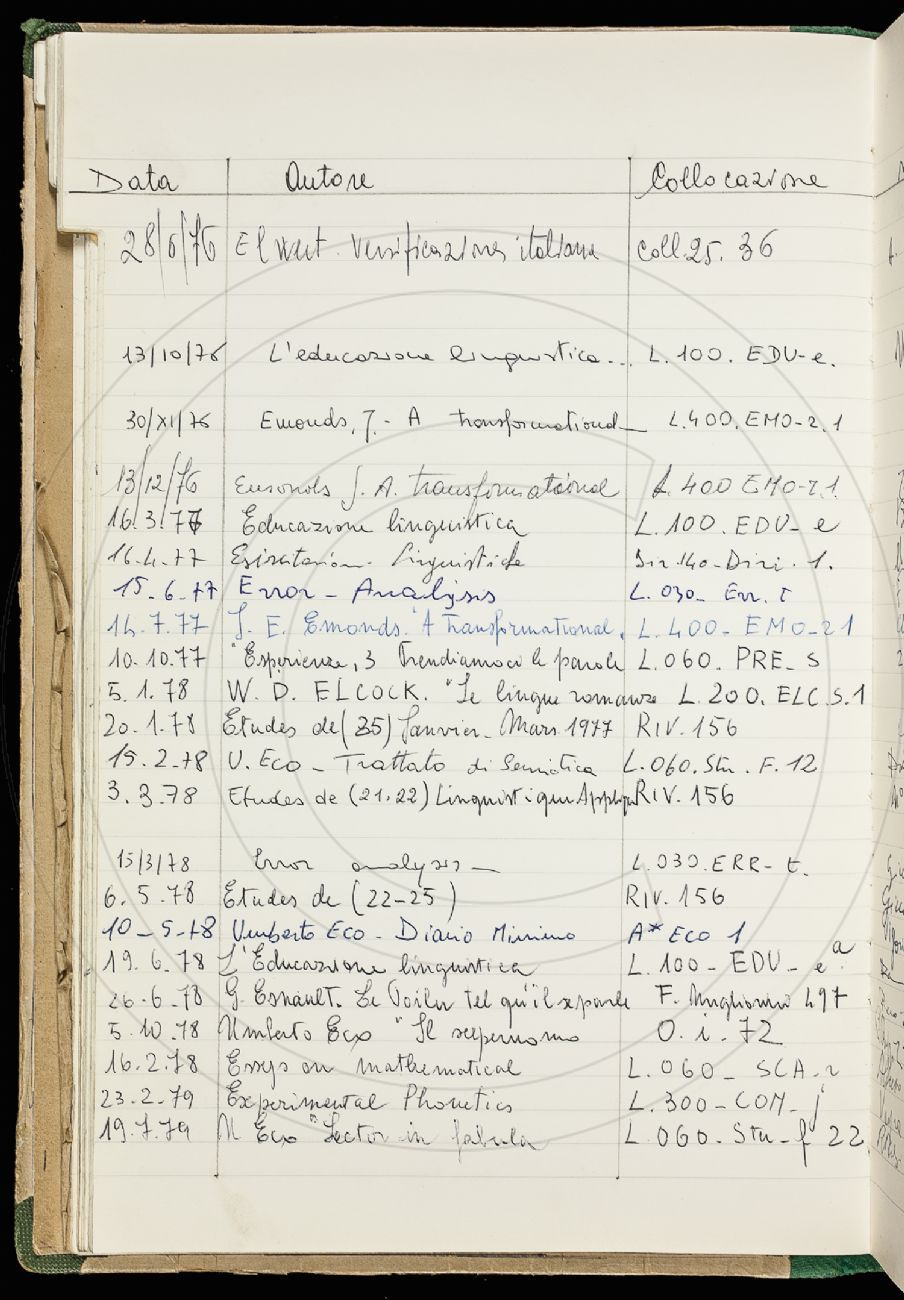 Data Autore Collocazione
28/6/76 Elwert. Versificazione italiana Coll. 25. 36
13/10/76 L'educazione linguistica... L. 100. EDU-e.
30/XI/76 Emonds, J. - A transformational L.400. EMO-2.1
13/12/76 J. A. transformational L. 400 EMO-2.1.
16.3.77 Educazione linguistica L. 100. EDU- e
16.4.77 Linguistiche 1.
15-6-77 Error - Analysis L. 030- Err. t
14.7.77 J. E. Emonds. A Transformational. L. 400- EMO-21
10.10.77 "Esperienze, 3 Prendiamoci le parole L.060. PRE- S
5.1.78 W. D. ELCOCK. "Le lingue romanze L. 200. ELC.S.1
20.1.78 Etudes de (25) Janvier- Mars 1977 RIV. 156
15.2-78 U. Eco - Trattato di Semiotica L.060. Stu. F. 12
3.3.78 Etudes de (21.22) RIV. 156
15/3/78 Error analysis - L.030.ERR- t.
6.5.78 Etudes de (22-25) RIV. 156
10-5-78 Umberto Eco - Diario Minimo A* Eco 1
19.6.78 L'Educazione linguistica L. 100- EDU- e a
26-6-78 G. Esnault. Le Poilu tel qu'il se parle F. Migliorini 497
5.10.78 Umberto Eco "Il superuomo O. i. 72
16.2.78 on mathematical L. 060- SCA-r
23.2-79 Experimental Phonetics L. 300-COM- j
19.7.79 Eco "Lector in fabula L.060. Stu- f 22